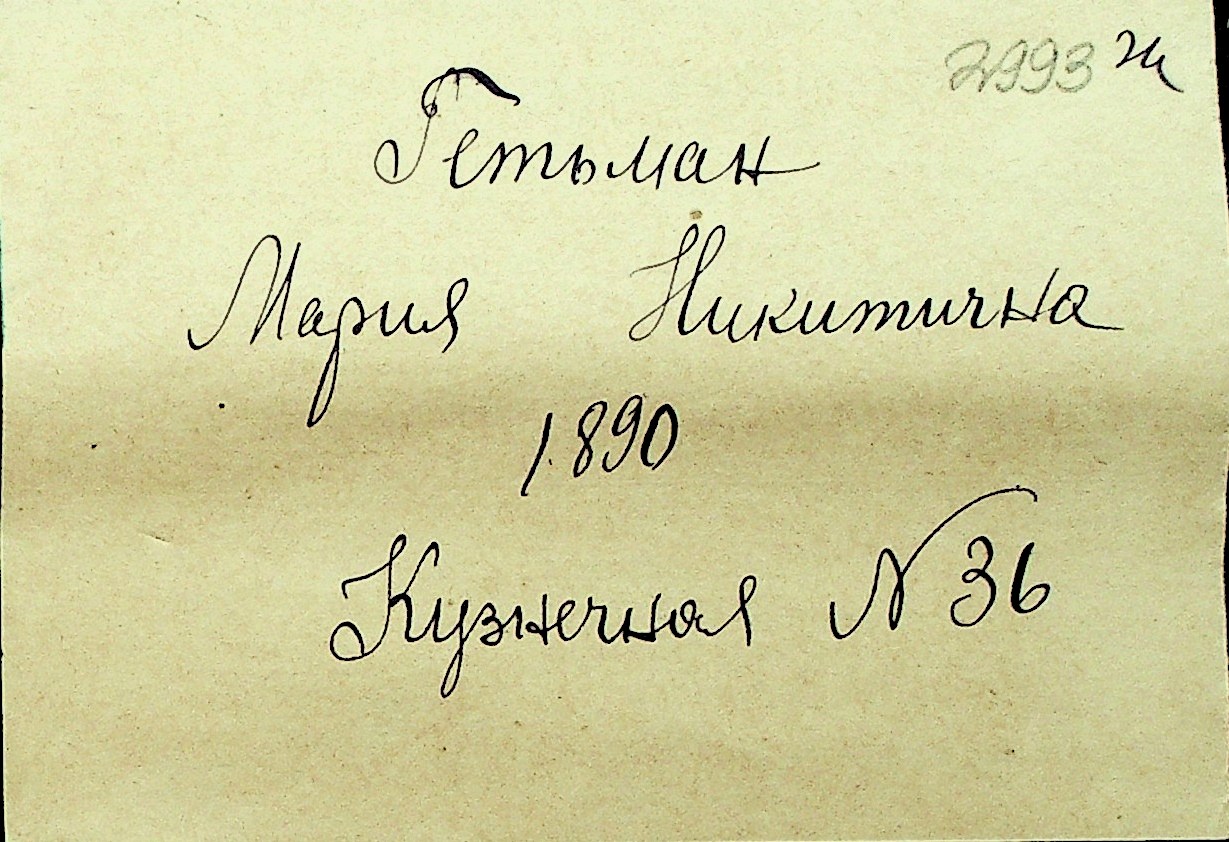 2993 ж
Гетьман
Мария Никитична
1890
Кузнечная N 36